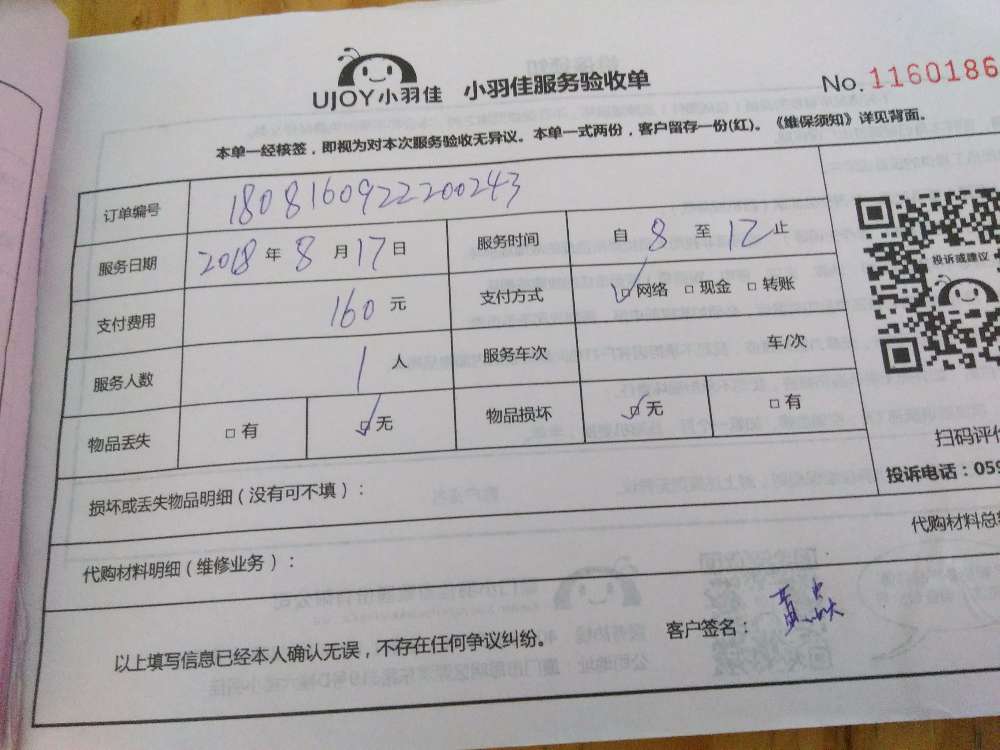 UJOY小羽佳 小羽佳服务验收单 No. 1160186
本单一经核签，即视为对本次服务验收无异议。本单一式两份，客户留存一份(红)。《维保须知》详见背面。
订单编号 1808160922200243
服务日期 2018 年 8 月 17 日 服务时间 自 8 至 12 止
支付费用 160 元 支付方式 ☑网络 □现金 □转账
服务人数 1 人 服务车次 车/次
物品丢失 □有 ☑无 物品损坏 ☑无 □有
投诉或建议
扫码评价
投诉电话：059
损坏或丢失物品明细（没有可不填）：
代购材料明细（维修业务）： 代购材料总
以上填写信息已经本人确认无误，不存在任何争议纠纷。 客户签名：